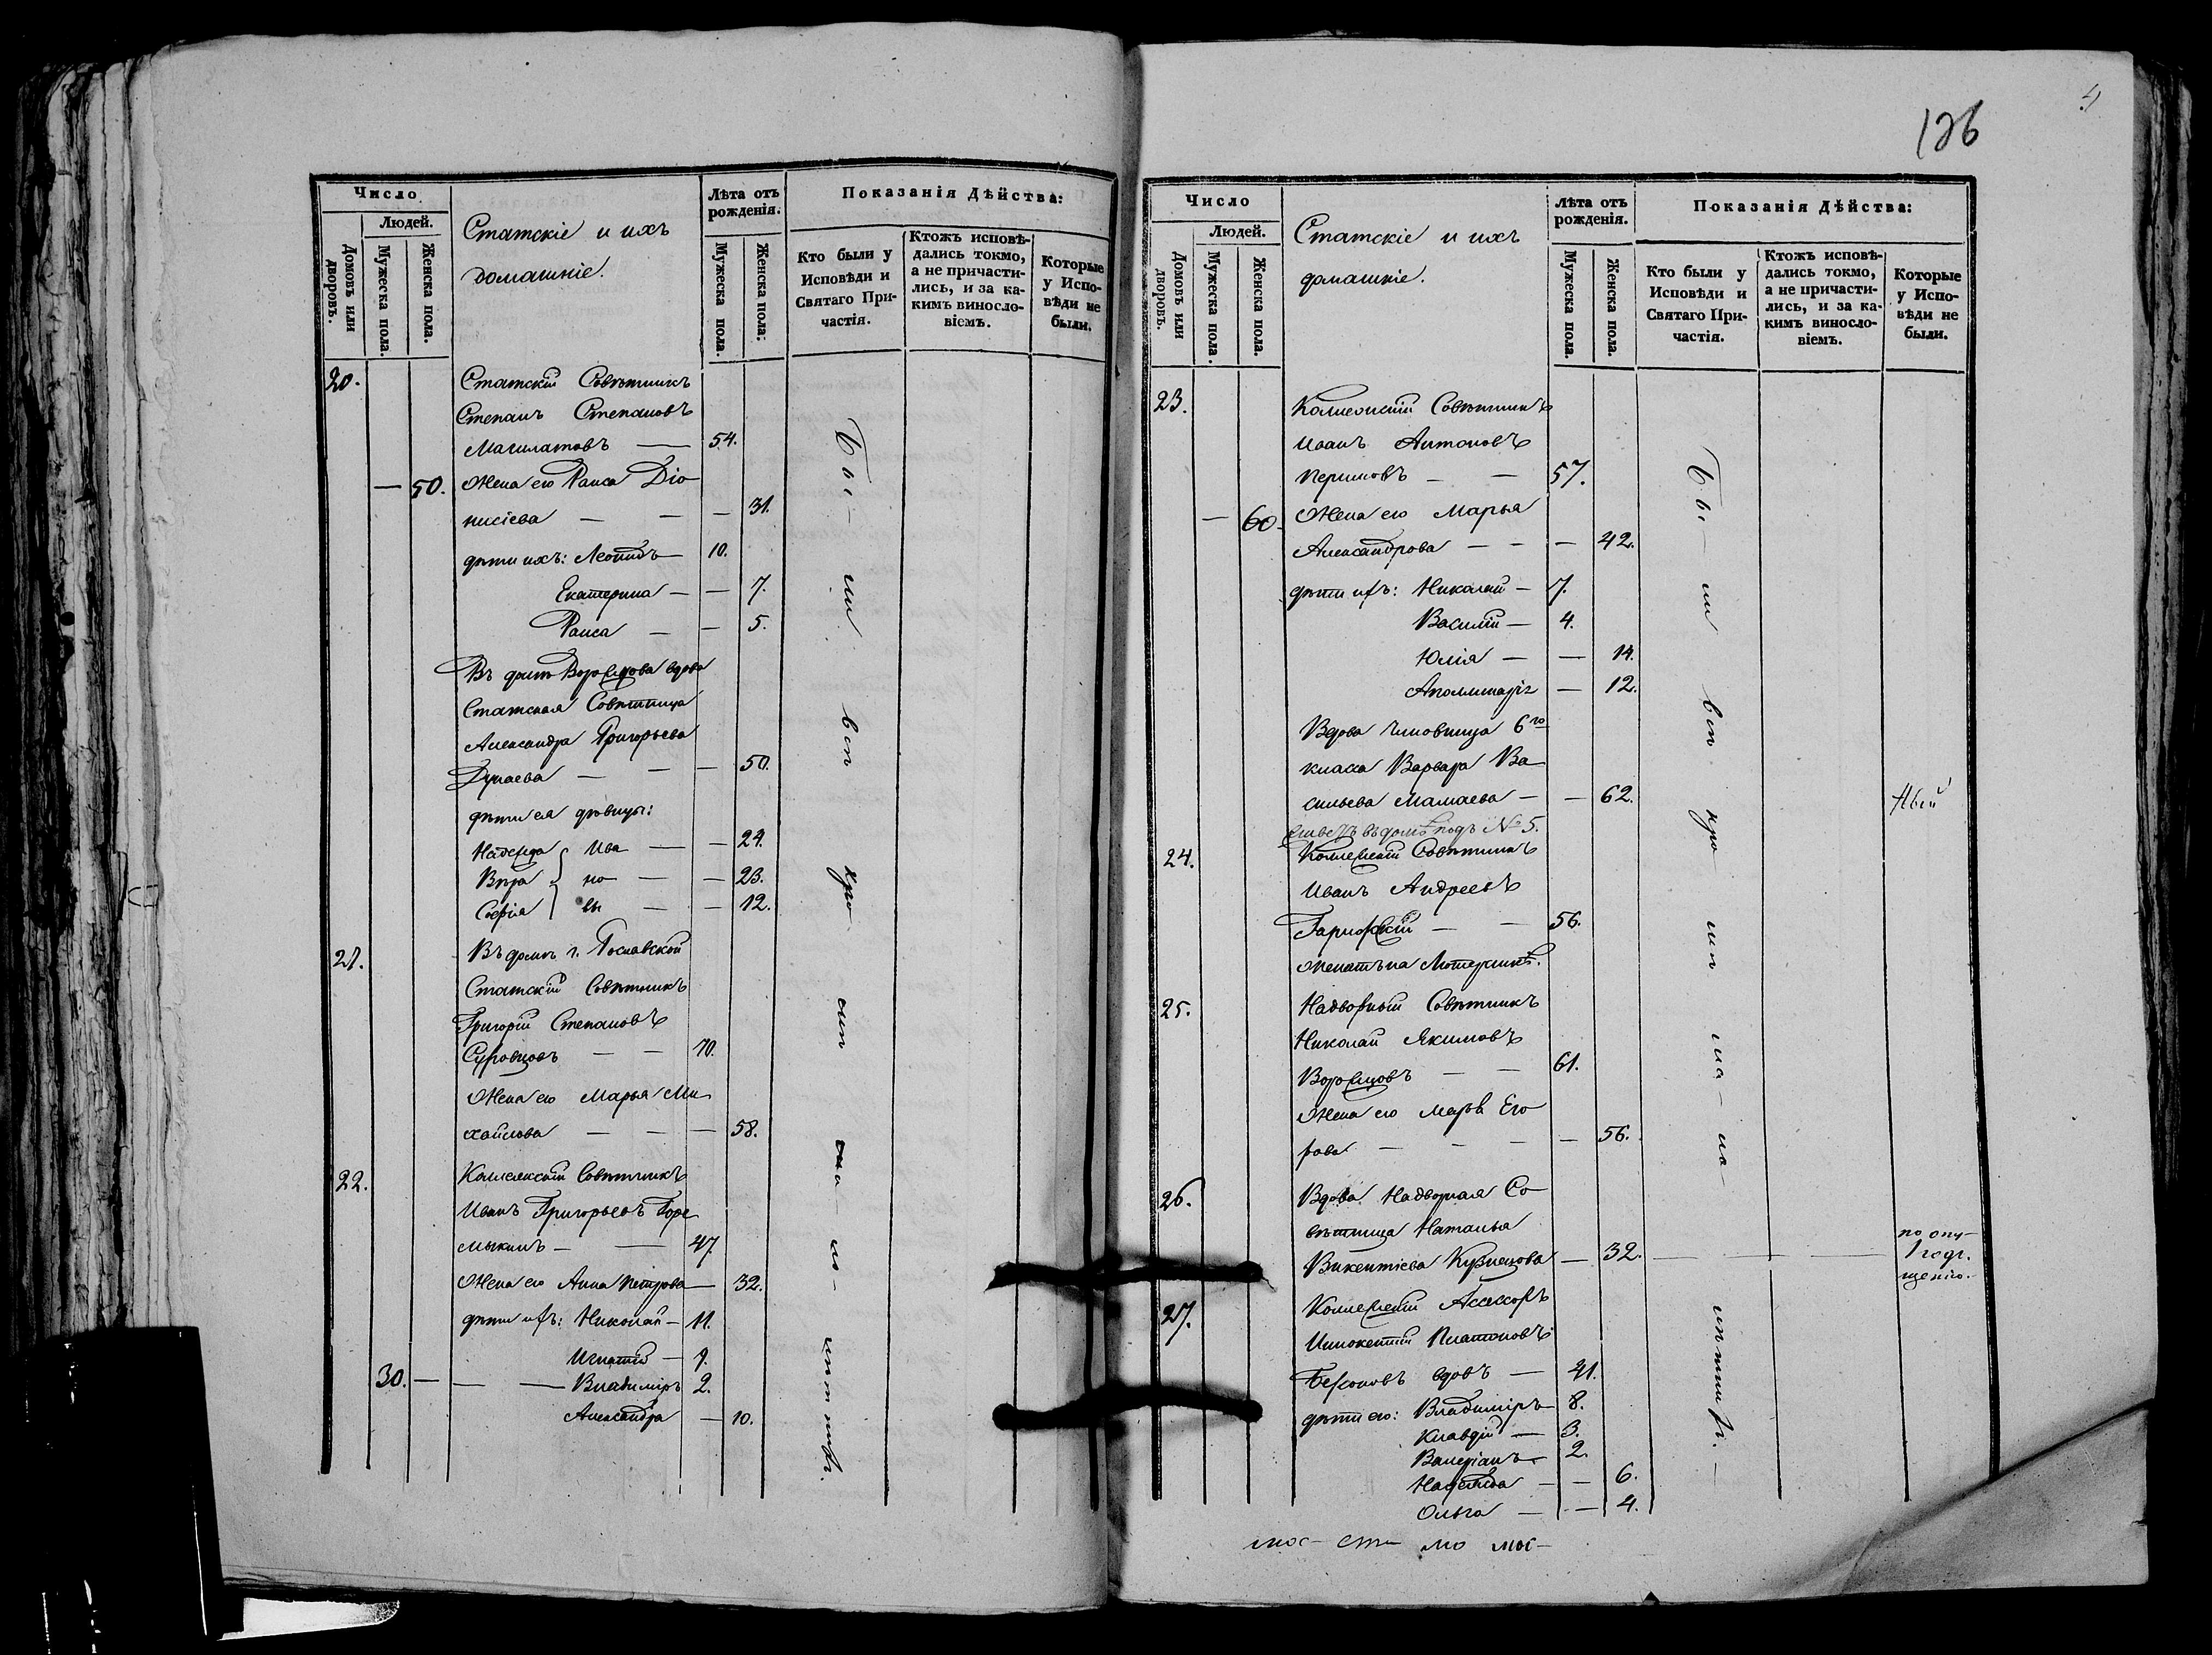 Число
Людей.
Домовъ или дворовъ.
Мужеска пола.
Женска пола.
Статскіе и ихъ
домашніе.
Лѣта отъ
рожденія.
Мужеска пола.
Женска пола.
Показанія Дѣйства:
Кто были у
Исповѣди и
Святаго При-
частія.
Ктожъ исповѣ-
дались токмо,
а не причасти-
лись, и за ка-
кимъ винословіемъ.
Которые
у Испо-
вѣди не
были.
20. Статскій Совѣтникъ
Степанъ Степановъ
— 54.
— 50. Жена его Раиса Діо-
нисіева — — — 31.
дѣти ихъ: Леонидъ — 10.
Екатерина — — 7.
Раиса — — 5.
Въ домѣ вдова
Статская Совѣтница
Александра Григорьева
Дунаева — — — 50.
дѣти ея дѣвицы:
Надежда } Ива — — 24.
Вѣра } но — — 23.
Софія } вы — — 12.
21. Въ домѣ г.
Статскій Совѣтникъ
Григорій Степановъ
Суровцовъ — — 70.
Жена его Марья Ми-
хайлова — — — 58.
22. Коллежскій Совѣтникъ
Иванъ Григорьевъ Горе
мыкинъ — — 47
Жена его Анна Петрова — 32.
дѣти ихъ: Николай — 11.
Игнатій —
30. — — — Владиміръ 2.
Александра — 10.
Бы- ли
126
Число
Людей.
Домовъ или дворовъ.
Мужеска пола.
Женска пола.
Статскіе и ихъ
домашніе.
Лѣта отъ
рожденія.
Мужеска пола.
Женска пола.
Показанія Дѣйства:
Кто были у
Исповѣди и
Святаго При-
частія.
Ктожъ исповѣ-
дались токмо,
а не причасти-
лись, и за ка-
кимъ винословіемъ.
Которые
у Испо-
вѣди не
были.
23. Коллежскій Совѣтникъ
Иванъ Антоновъ
— — 57.
— 60. Жена его Марья
Александрова — — — 42.
дѣти ихъ: Николай — 7.
Василій — 4.
Юлія — — 14.
— 12.
Вдова Чиновница 6го
класса Варвара Ва
сильева Мамаева — — 62.
въ домѣ подъ № 5.
24. Коллежскій Совѣтникъ
Иванъ Андреевъ
— — 56.
женатъ на
25. Надворный Совѣтникъ
Николай Якимовъ
— — 61.
Жена его Марья Его
рова — — — — 56.
26. Вдова Надворная Со
вѣтница Наталья
Викентіева Кузнецова — 32. — — — по опу-
щенію.
27. Коллежскій Ассессоръ
Иннокентій Платоновъ
вдовъ — 41.
дѣти его: Владиміръ — 8.
Клавдій — 3.
Валеріанъ — 2.
Надежда — — 6.
Ольга — — 4.
Бы- ли